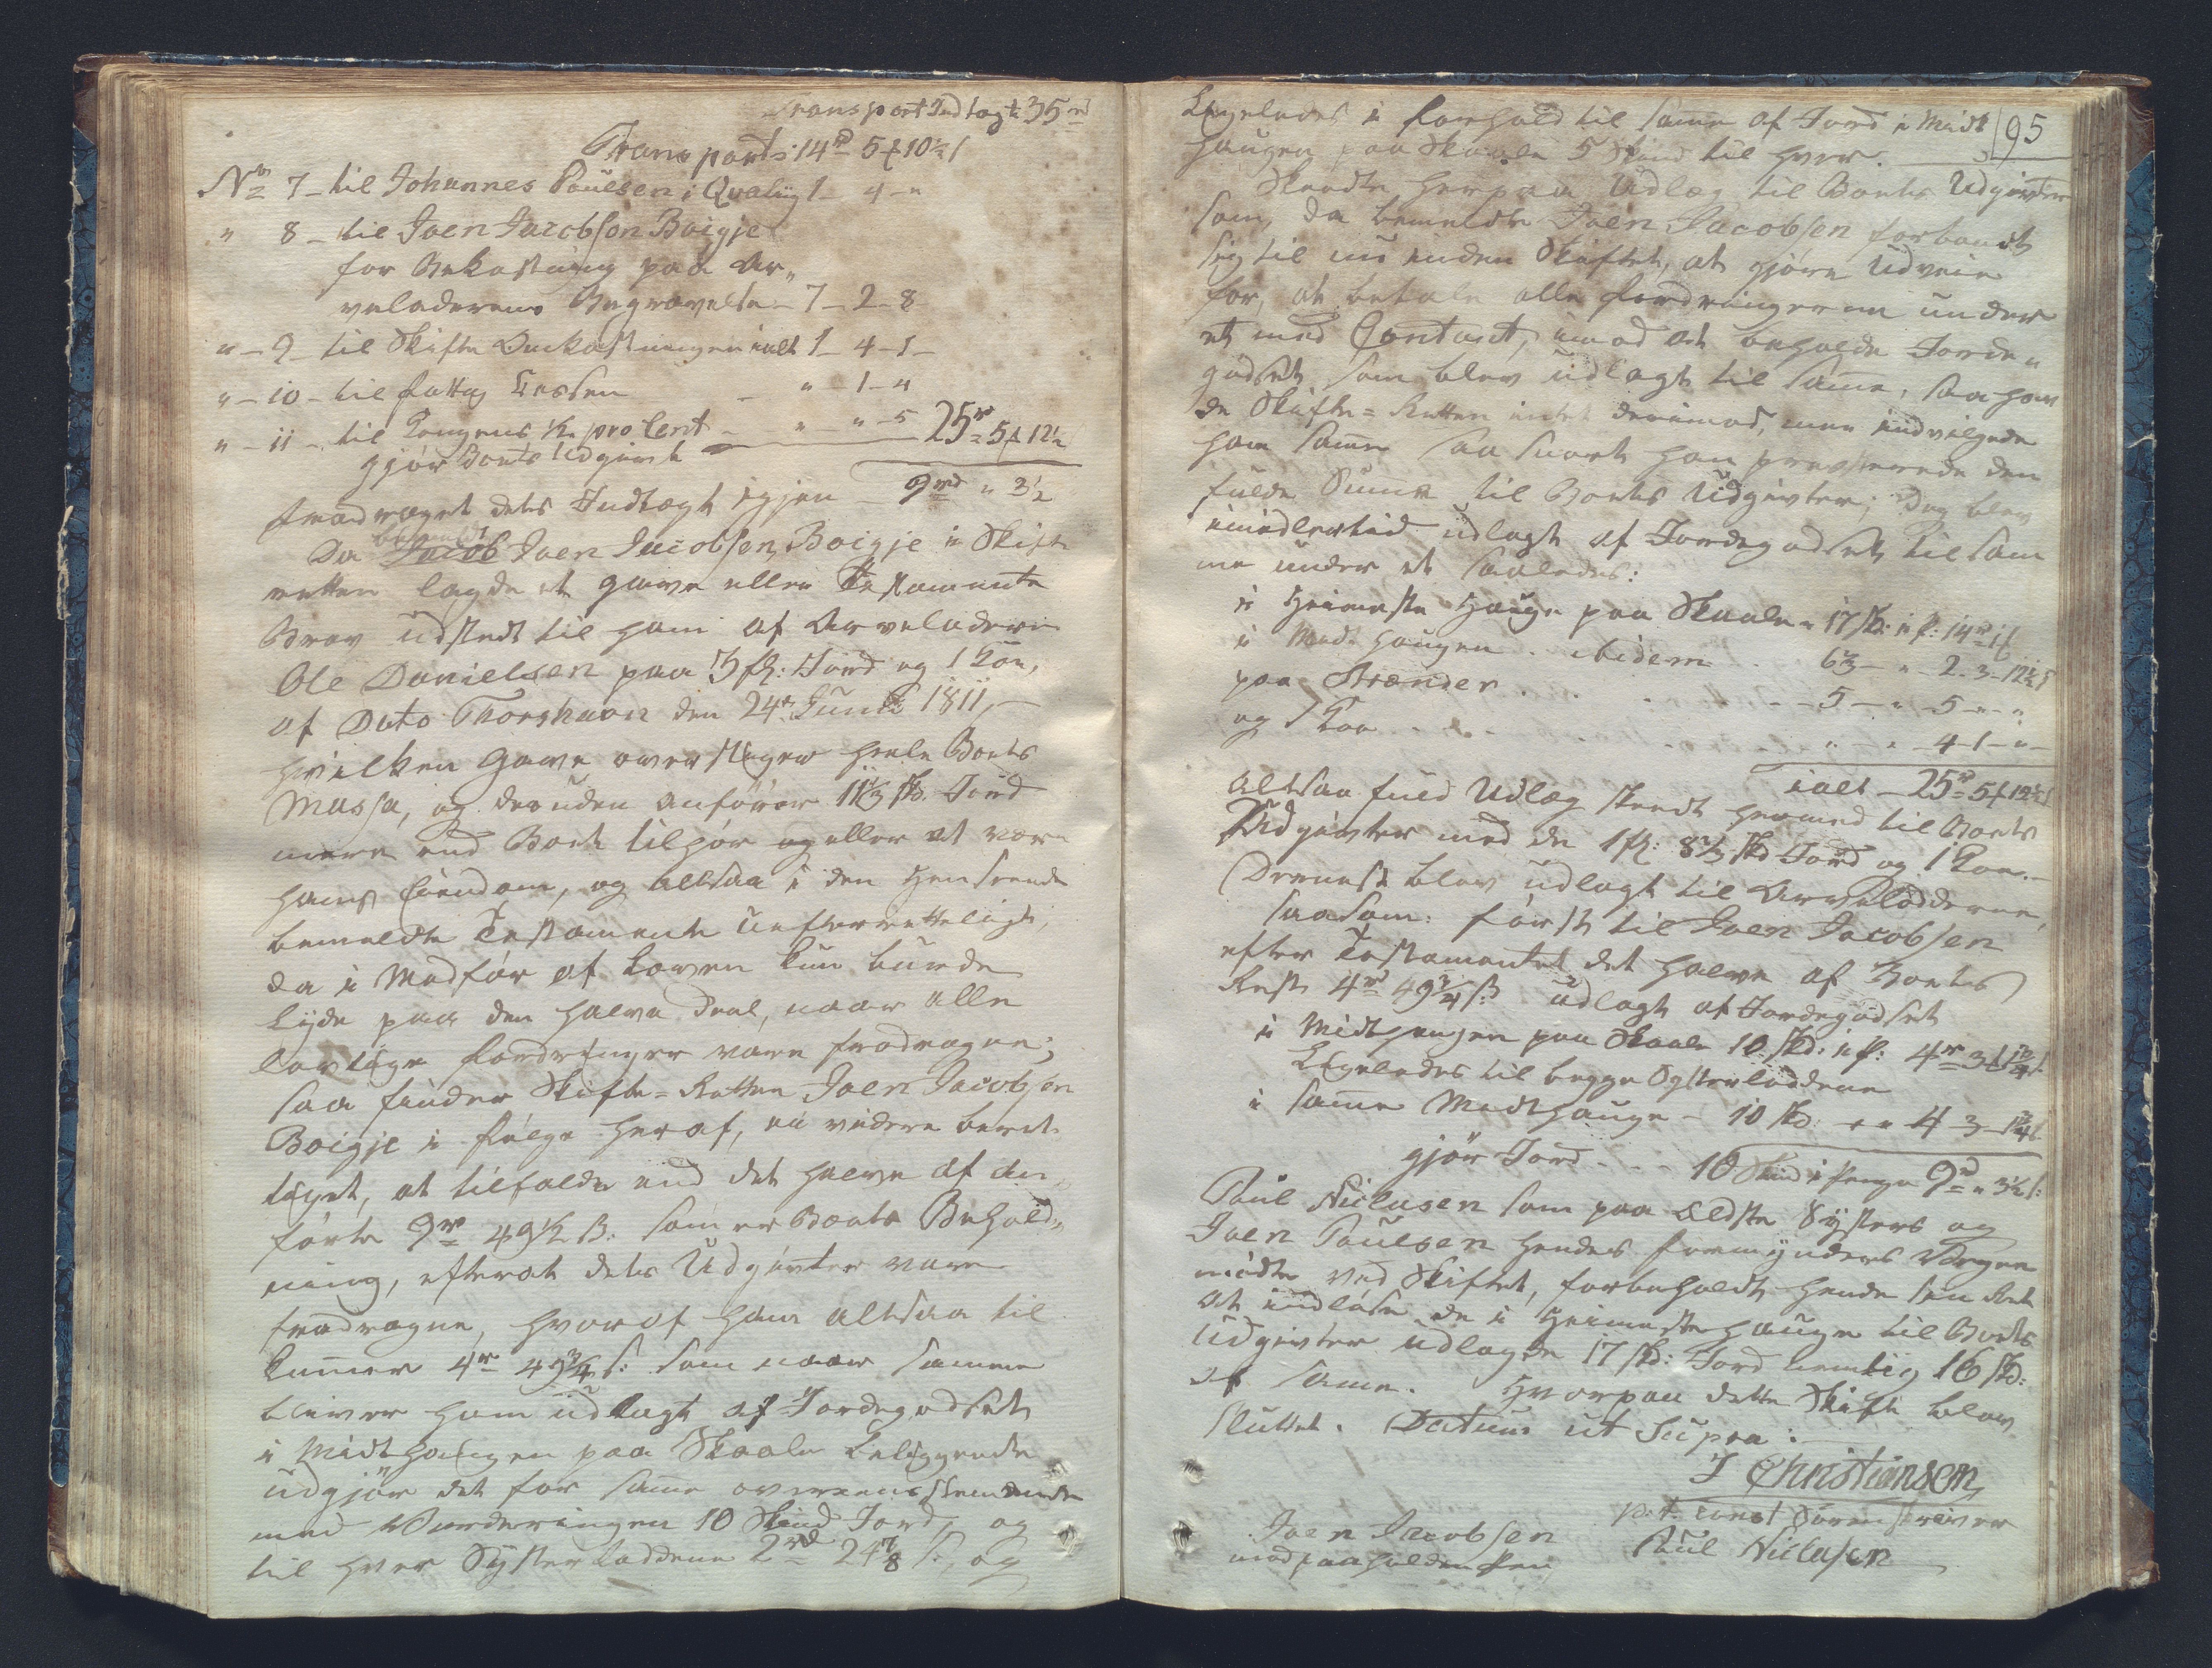 Transport Indtægt 35 rd
Transport: 14 rd 5 ₰ 10½ s
No 7 – til Johannes Poulsen i Qvalvig 1 – 4 – "
" 8 – til Joen Jacobsen Boigje
for Bekostning paa Ar„
veladerens Begravelse – 7 – 2 – 8
" – 9 – til Skifte Omkostningen ialt 1 – 4 – 1 –
" – 10 – til fattig Cassen – " – 1 – 4
" – 11 – til Kongens ½ pro Cent – " – " – 5
gjör Boets Udgivt 25 rd 5 ₰ 12½
fradraget dets Indtægt igjen 9 rd " 3½
Da bemeldt Jacob Joen Jacobsen Boigje i Skifte
retten lagde et gave eller Testamente
Brev udstedt til ham af Arveladeren
Ole Danielsen paa 3 fl: Jord og 1 Koe,
af Dato Thorshavn den 24de Junii 1811,–
hvilken Gave overstiger heele Boets
Massa, og desuden anförer 11⅓ skd. Jord
mere end Boet tilhör og eller at være
hans Eiendom, og altsaa i den Henseende
bemeldte Testamente uefterretteligt,
da i Medför af Loven kun burde
Lyde paa den halve Deel, naar alle
lovlige Fordringer vare fradragne;
saa finder Skifte=Retten Joen Jacobsen
Boigje i fölge heraf, ei videre beret
tiget, at tilfalde end det halve af an„
förte 9 rd 49½ s: som er Boets Behold„
ning, efterat dets Udgivter vare
fradragne, hvoraf ham altsaa til
kommer 4 rd 49¾ s: som naar samme
bliver ham udlagt af Jordegodset
i Midthaugen paa Skaale beliggende
udgjör det for samme overeensstemmende
med Vurderingen 10 Skind Jord, og
til hver Systerloddene 2 rd 24⅞ s:, og
95
Ligeledes i forhold til samme af Jord i Midt
haugen paa Skaale 5 Skind til hver.
Skeedte herpaa Udlæg til Boets Udgivter
som, da bemeldte Joen Jacobsen forbandt
sig til inden Skiftet, at gjöre Udveie
for, at betale alle fordringerne under
et med Contant, imod at beholde Jorde„
godset som blev udlagt til samme, saa hav
de Skifte=Retten intet derimod, men indvilgede
ham samme saa snart han præsterede den
fulde Summa til Boets Udgivter; Dog blev
imidlertid udlagt af Jordegodset til sam
me under et saaledes:
i Heimeste Hauge paa Skaale 17 skd: i p: 14 rd 1 ₰
i Midthaugen . ibidem . . 6⅔ – " 2 – 3 – 12½ s
paa Strænder . . . . 5 – " 5 – " – "
og 1 Koe . . . . " – " 4 – 1 – " –
ialt – 25 rd 5 ₰ 12½ s
Altsaa fuld Udlæg skeedt hermed til Boets
Udgivter med de 1 fl: 8⅔ skd Jord og 1 Koe.–
Dernest blev udlagt til Arvelodderne,
saasom: först til Joen Jacobsen
efter Testamentet det halve af Boets
Rest 4 rd 49¾ s: udlagt af Jordegodset
i Midthaugen paa Skaale 10 skd: i p: 4 rd 3 ₰ 1¾ s:
Ligeledes til begge Systerloddene
i samme Midthauge – 10 skd: " " 4 – 3 – 1¾
gjör Jord . . . 10 Skind i Penge 9 rd " 3½ s:
Poul Niclasen som paa Ældste Systers og
Joen Poulsen hendes formynders Vegne
mödte ved Skiftet, forbeholdt hende sin Ret
at indlöse de i Heimeste hauge til Boets
Udgivter udlagde 17 skd: Jord nemlig 16 skd:
af samme. Hvorpaa dette Skifte blev
sluttet. Datum ut Supra:
J Christiansen
p: t: const Sorenskriver
Joen Jacobsen
med paaholden Pen
Poul Niclasen